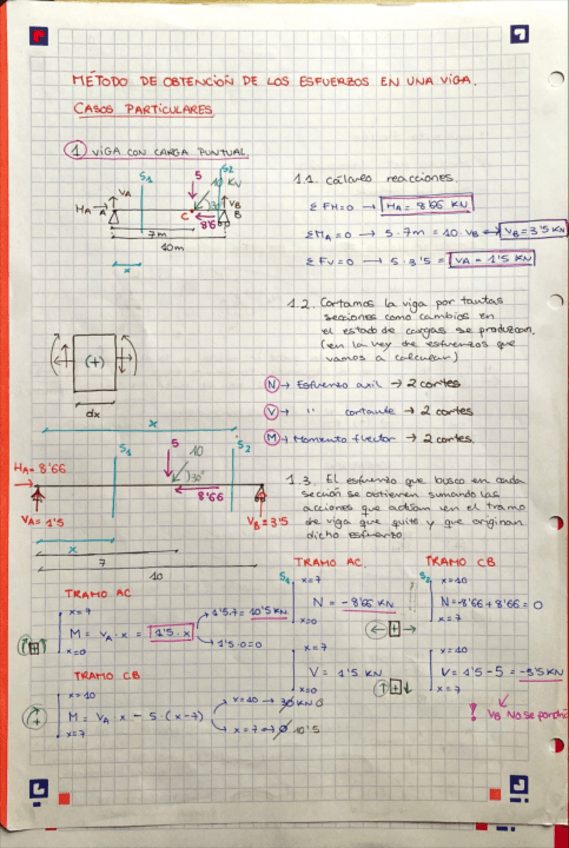 MÉTODO DE OBTENCIÓN DE LOS ESFUERZOS EN UNA VIGA.
CASOS PARTICULARES
1 VIGA CON CARGA PUNTUAL.
S1
S2
5
10 KN
HA
VA
A
C
VB
B
8'6
7m
10m
x
1.1. cálculo reacciones.
ΣFH=0 → HA = 8'66 KN
ΣMA=0 → 5·7m = 10·VB ↔ VB=3'5 KN
ΣFV=0 → 5-3'5 = VA = 1'5 KN
1.2. Cortamos la viga por tantas
secciones como cambios en
el estado de cargas se produzcan.
(en la ley de esfuerzos que
vamos a calcular)
N → Esfuerzo axil → 2 cortes
V → " cortante → 2 cortes
M → Momento flector → 2 cortes.
(+)
dx
x
S1
5
10
S2
HA= 8'66
30°
8'66
VA= 1'5
VB = 3'5
x
7
10
1.3. El esfuerzo que busco en cada
sección se obtienen sumando las
acciones que actúan en el tramo
de viga que quite y que originan
dicho esfuerzo
TRAMO AC
x=7
M = VA · x = 1'5 · x
1'5.7= 10'5 KN
1'5.0=0
x=0
TRAMO CB
x=10
M = VA x - 5·(x-7)
x=10 → 30 KN 0
x=7 → 0 10'5
x=7
TRAMO AC.
S1
x=7
N = -8'66 KN
x=0
x=7
V= 1'5 KN
x=0
TRAMO CB
S2
x=10
N=-8'66+8'66=0
x=7
x=10
V= 1'5-5 = -3'5 KN
x=7
! VB No se